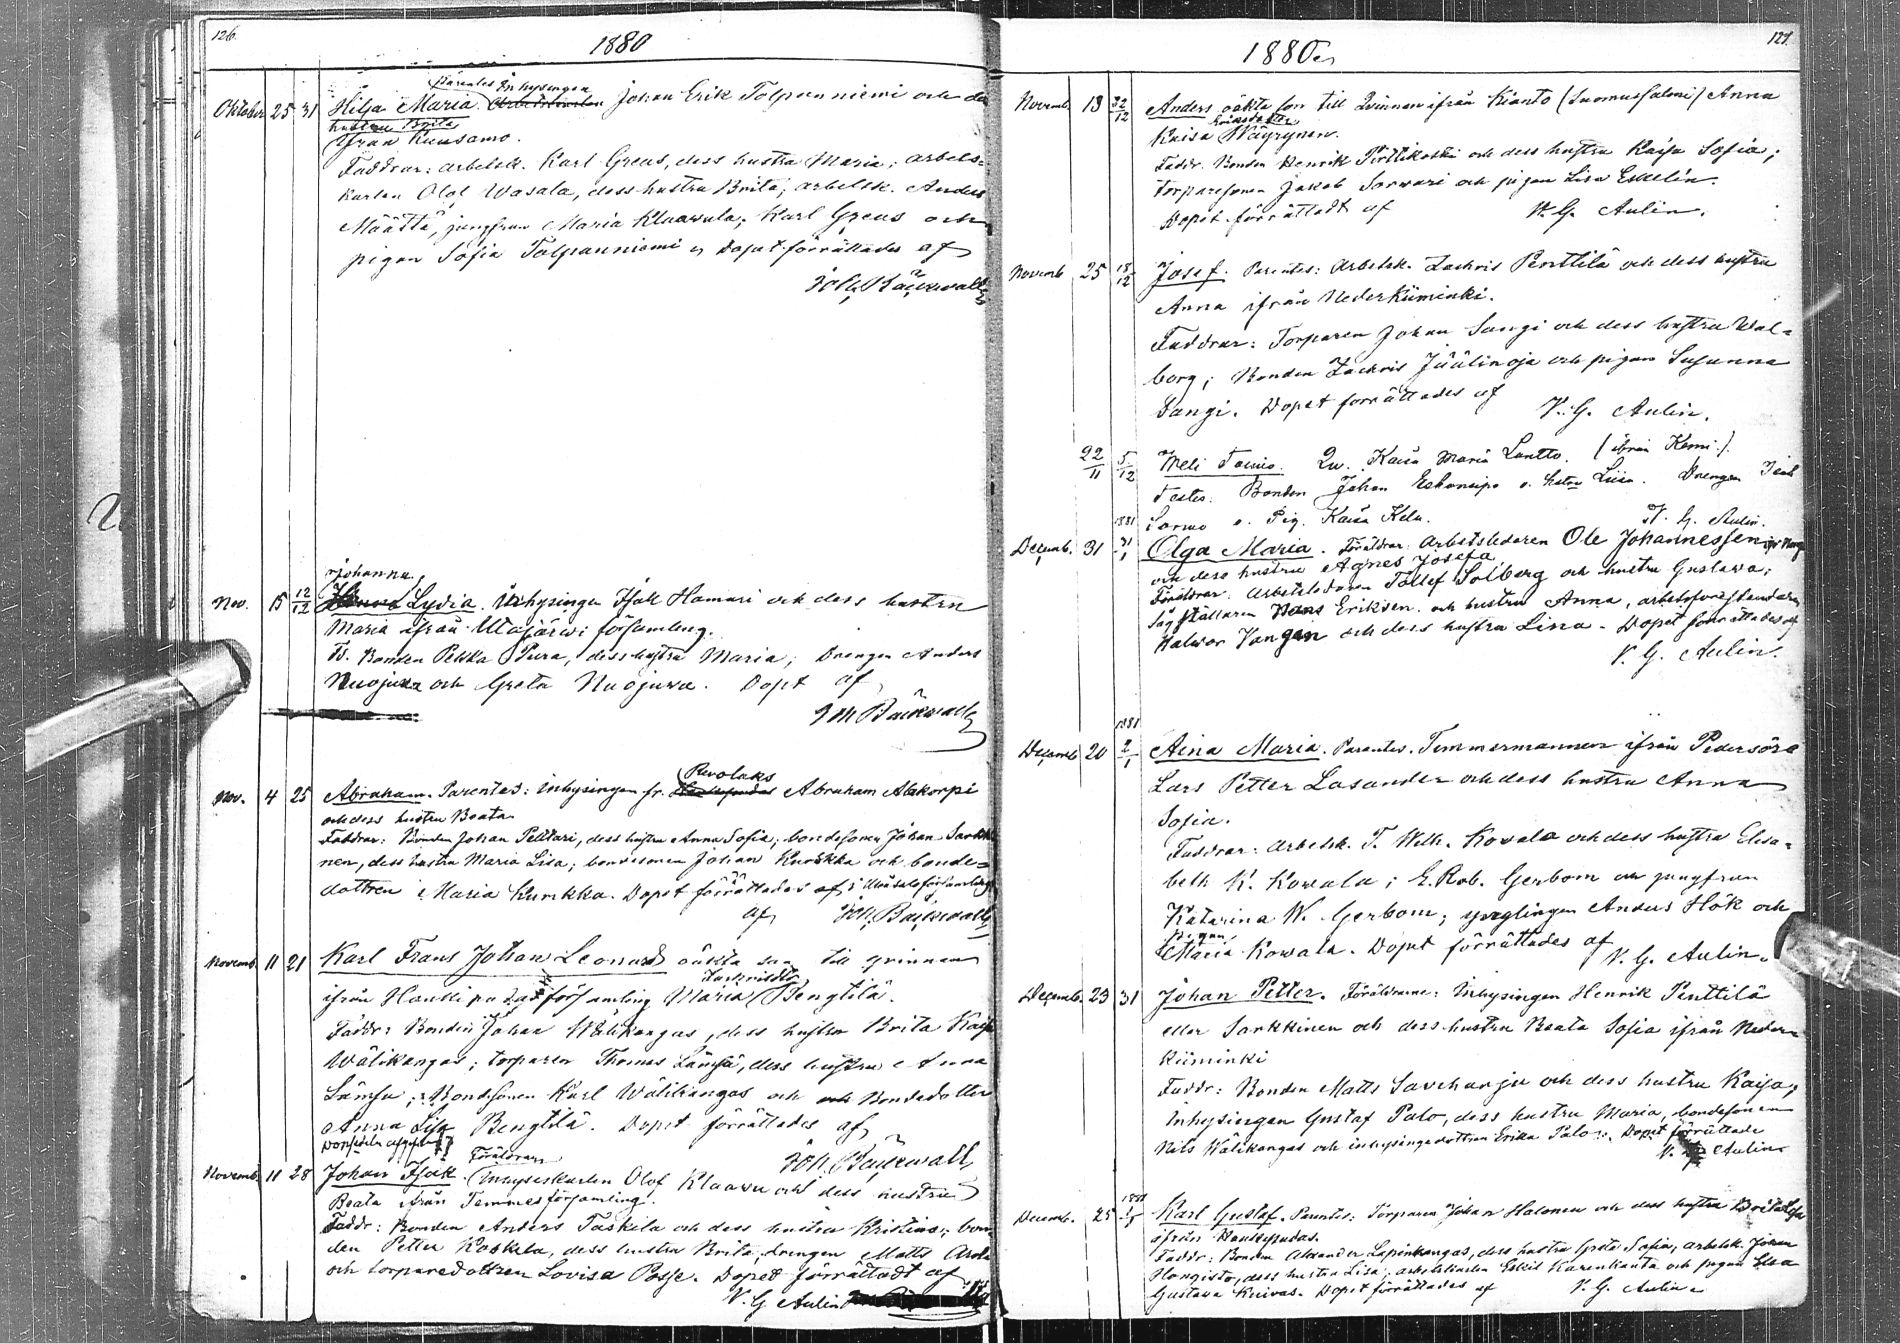 126.
1880
Parentes Inhysingen
Oktober 25 31 Hilja Maria. Johan Erik Tolpanniemi och
hustru Brita
ifrån Kuusamo.
Faddrar: arbetsk. Karl Greus, dess hustru Maria; arbets-
karlen Olof Wasala, dess hustru Brita; arbetsk. Anders
Määttä, jungfrun Maria Klaawula; Karl Greus och
pigan Sofia Tolpanniemi Dopet förrättades af
Joh. Bäckwall
Johanna
Nov. 15 12/12 Lydia. Inhysingen Isak Hamari och dess hustru
Maria ifrån Utajärwi församling.
W. Bonden Pekka Pura, dess hustru Maria; Drengen Anders
Nuojua och Greta Nuojuwa. Dopt af
Joh Bäckwall
Revolaks
Nov. 4 25 Abraham. Parentes: inhysingen fr. Abraham Alakorpi
och dess hustru Beata
Faddrar: Bonden Johan Pelttari, dess hustru Anna Sofia; bondesonen Johan Sarkki-
nen, dess hustru Maria Lisa; bondesonen Johan Kurikka och bonde-
dottren Maria Kurikka. Dopet förrättades af i församling
af Joh. Bäckwall
Novemb. 11 21 Karl Frans Johan Leonard oäkta son till qvinnan
ifrån Haukipudas församling Maria Bengtilä.
Faddr: Bonden Johan Wälikangas, dess hustru Brita Kaisa
Wälikangas; torparen Thomas Lämsä, dess hustru Anna
Lämsä; Bondsonen Karl Wälikangas och Bondedotter
Anna Lisa Bengtilä. Dopet förrättades af
Joh. Bäckwall
Föräldrar
Novemb. 11 28 Johan Isak. Inhyseskarlen Olof Klaawu och dess hustru
Beata ifrån Temmes församling.
Faddr: Bonden Anders Taskila och dess hustru Kristina; bon-
den Petter Koskela, dess hustru Brita; drengen Matts Arola
och torparedottren Lovisa Posse. Dopet förrättadt af
V. G Aulin
127.
1880
Novemb. 13 Anders oäkta son till Qvinnan ifrån Kianto (Suomussalmi) Anna
Eriksdotter
Kaisa Wäyrynen.
Faddr. Bonden Henrik Pirttikoski och dess hustru Kaisa Sofia;
torparesonen Jakob Sarwari och pigan Lisa Eskelin.
Dopet förrättadt af V. G. Aulin.
Novemb 25 18/12 Josef. Parentes: Arbetsk. Zachris Penttilä och dess hustru
Anna ifrån Nederkiiminki.
Faddrar: Torparen Johan Sangi och dess hustru Wal-
borg; Bonden Zachris Jäälinoja och pigan Susanna
Sangi. Dopet förrättades af V. G. Aulin.
22/11 5/12 Weli Toivo. Qv. Kaisa Maria Lantto. (ifrån Kemi.)
Testes. Bonden Johan o. hstru Liisa. Drengen
o. Pig. Kaisa V. G. Aulin.
1881
Decemb. 31 31/1 Olga Maria. Föräldrar: Arbetsledaren Ole Johannessen
och dess hustru Agnes Josefa
Föräldrar: Arbetsledaren Tollef Solberg och hustru Gustava;
Sågställaren Hans Eriksen och hustru Anna, arbetsföreståndaren
Halvor Vangen och dess hustru Lina. Dopet förrättades af
V. G. Aulin.
1881
Decemb 20 2/1 Aina Maria. Parentes. Timmermannen ifrån Pedersöre
Lars Petter Lasander och dess hustru Anna
Sofia.
Faddrar: Arbetsk. T. Wilh. Kowala och dess hustru Elisa-
beth K. Kowala; E. Rob. Gerbom och jungfrun
Katarina W. Gerbom; ynglingen Anders Hök och
pigan
Maria Kowala. Dopet förrättades af V. G. Aulin.
Decemb. 23 31 Johan Petter. Föräldrarne: Inhysingen Henrik Penttilä
eller Sarkkinen och dess hustru Beata Sofia ifrån Neder-
kiiminki
Faddr: Bonden Matts Saveharju och dess hustru Kaisa;
Inhysingen Gustaf Palo, dess hustru Maria, bondesonen
Nils Wälikangas och inhysingedottren Erika Palo. Dopet förrättade
V. G. Aulin
1881
Decemb. 25 Karl Gustaf. Parentes: Torparen Johan Halonen och dess hustru Brita Lisa
ifrån Haukipudas.
Faddr: Bonden Alexander Lapinkangas, dess hustru Greta Sofia; arbetsk. Johan
Hongisto, dess hustru Lisa; arbetskarlen Eskil Karenkanta och pigan Elsa
Gustava Kuivas. Dopet förrättades af V. G. Aulin